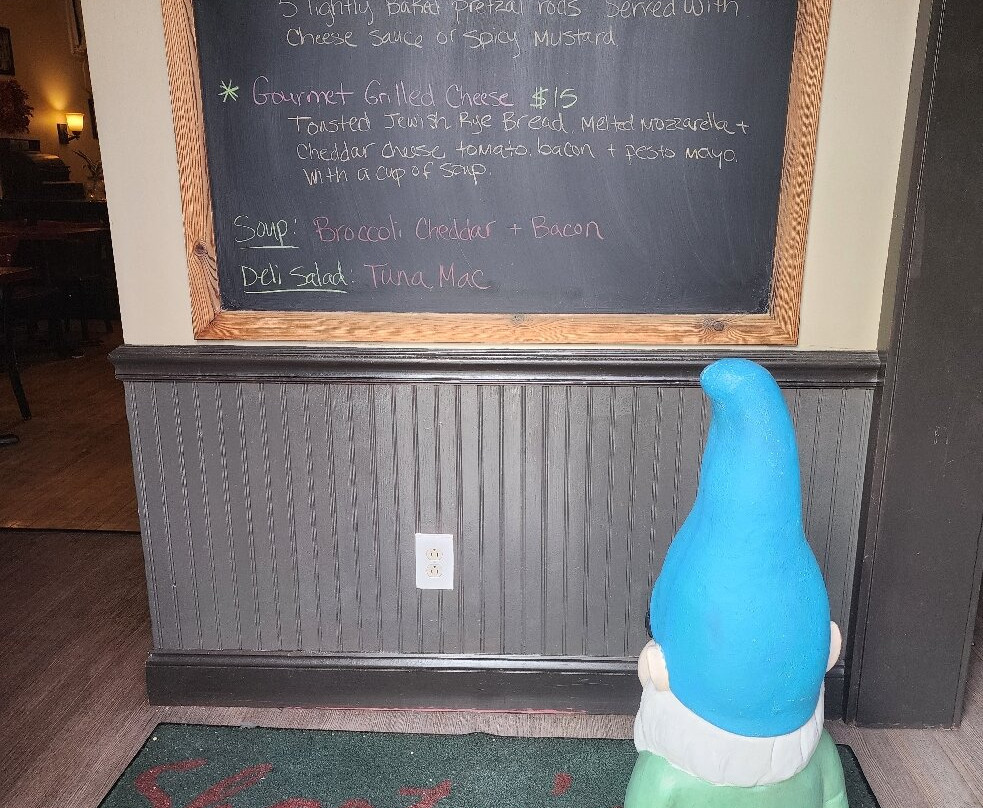 5 lightly Baked pretzal rods Served with
Cheese Sauce or Spicy Mustard
* Gourmet Grilled Cheese $15
Toasted Jewish Rye Bread, Melted Mozzarella +
Cheddar cheese, tomato, bacon + pesto mayo.
With a cup of soup.
Soup: Broccoli Cheddar + Bacon
Deli Salad: Tuna Mac